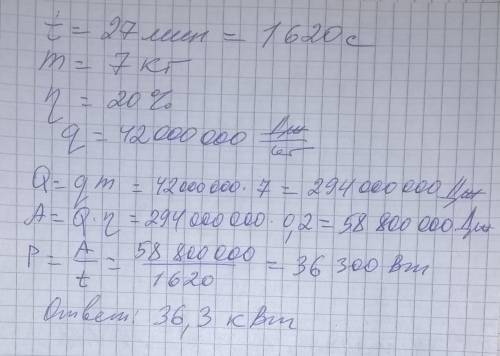 t = 27 мин = 1620 с
m = 7 кг
η = 20%
q = 42000000 Дж/кг
Q = q m = 42000000 · 7 = 294 000 000 Дж
A = Q · η = 294 000 000 · 0,2 = 58 800 000 Дж
P = A/t = 58 800 000/1620 = 36 300 Вт
Ответ: 36,3 кВт